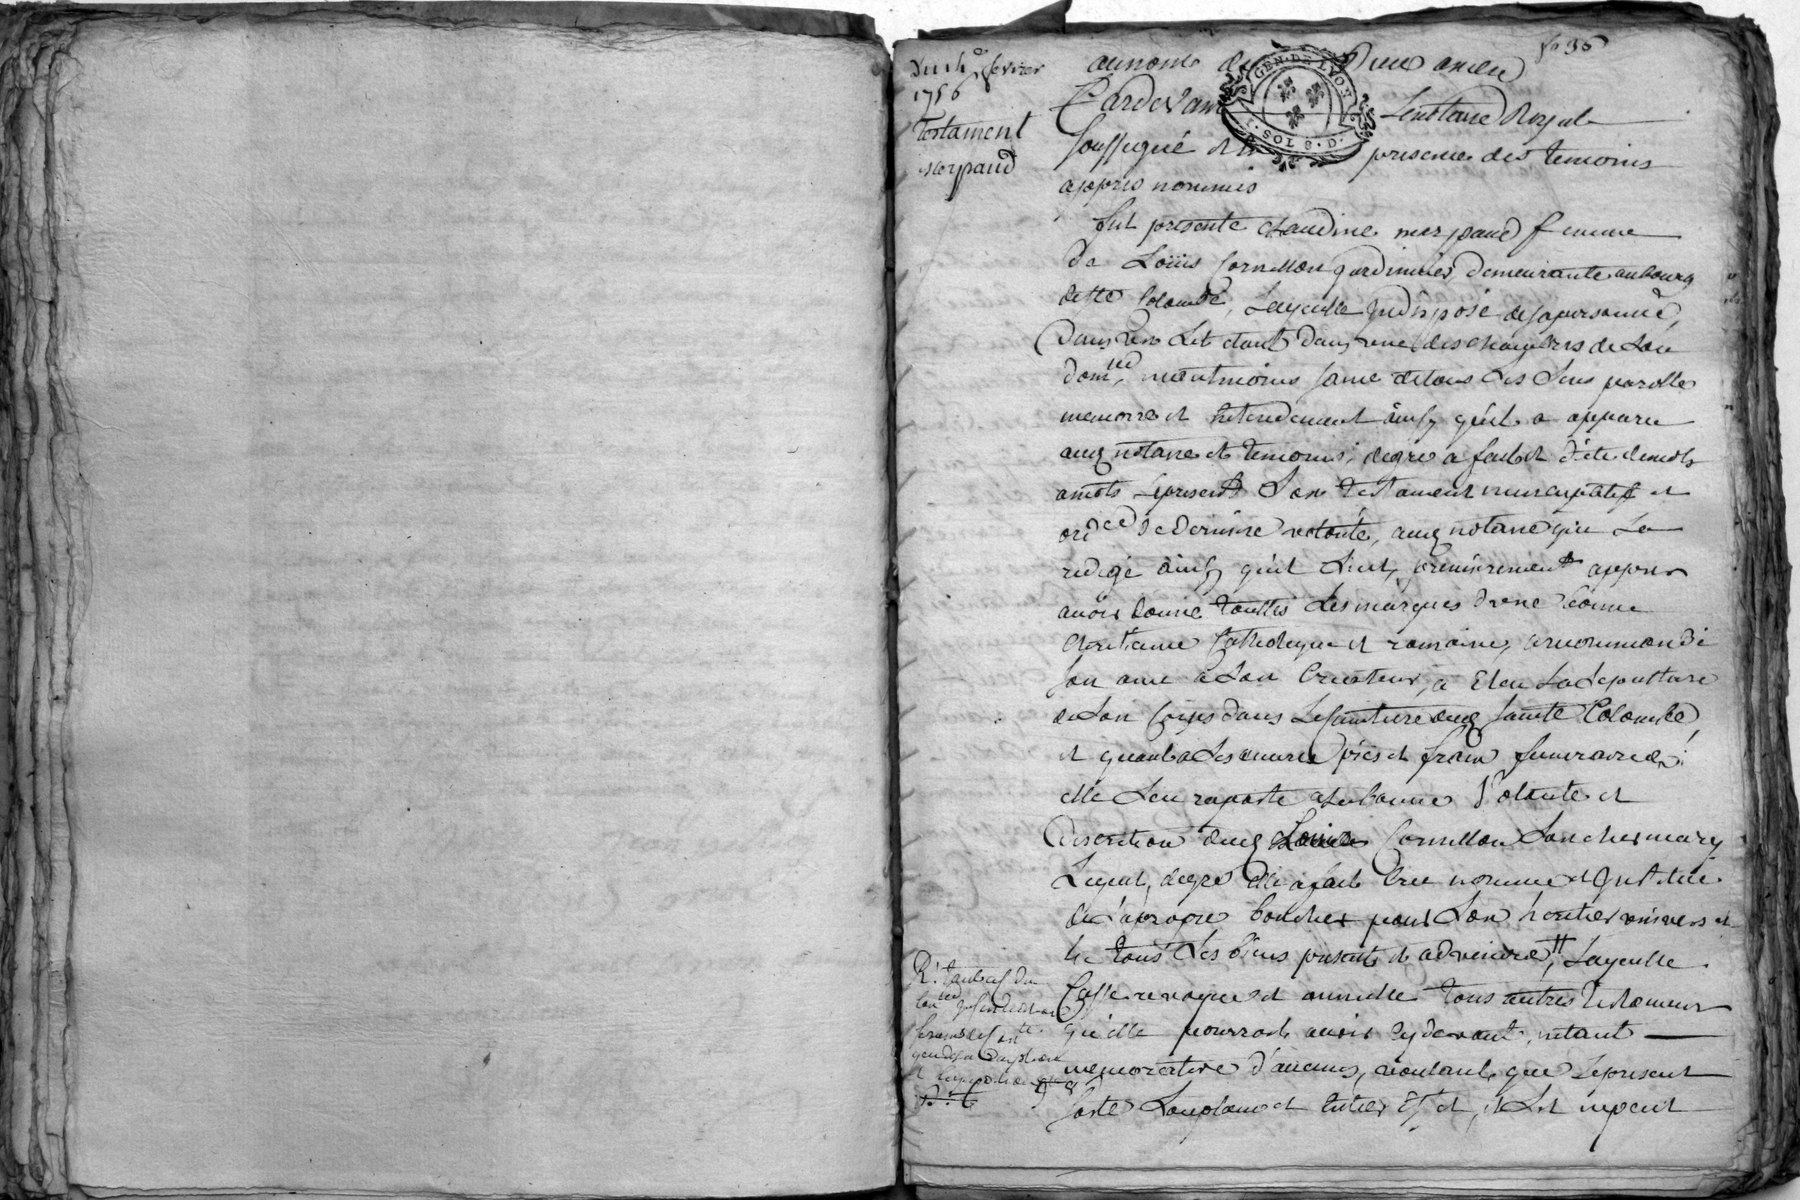 fo 36
Du 14e fevrier
1756
Testament
merpaud
au nom de Dieu amen
Pardevant Le notaire Royal
soussigné et en presence des temoins
appres nommés
fut presente claudine merpaud femme
de Loüis Cornillon jardinier demeurante au bourg
de Ste Colombe, Laquelle indisposé de sa personne,
dans un Lit etant dans une des chambres de son
domlle, neantmoins saine de tous ses sens parolle
memoire et entendement ainsy quil a apparu
aux notaire et temoins, de gré a fait et dicté de mots
a mots le present son testament nuncupatif et
ordce de derniere volonté, aux notaire qui la
redigé ainsy quil suit, premierement appres
avoir donné touttes les marques d'une bonne
chretienne Catholique et romaine, a recommandé
son ame a son Createur, a Eleu sa sepulture
de son corps dans le cimetiere dud Sainte Colombe,
et quant a ses œuvres pies et frais funeraires
elle s'en raporte a la bonne Volonté et
discretion dud Louis Cornillon son cher mary
Lequel, de gré elle a fait cree nommé et institué
de sa propre bouche pour son heritier universel
de tous ses biens presents et advenir, Laquelle
Casse revoque et annulle tous autres testaments
qu'elle pourroit avoir cy devant, n'etant
memorative d'aucuns, voulant que le present
sorte son plain et entier Effet, et s'il ne peut
GEN. DE LYON
8 D